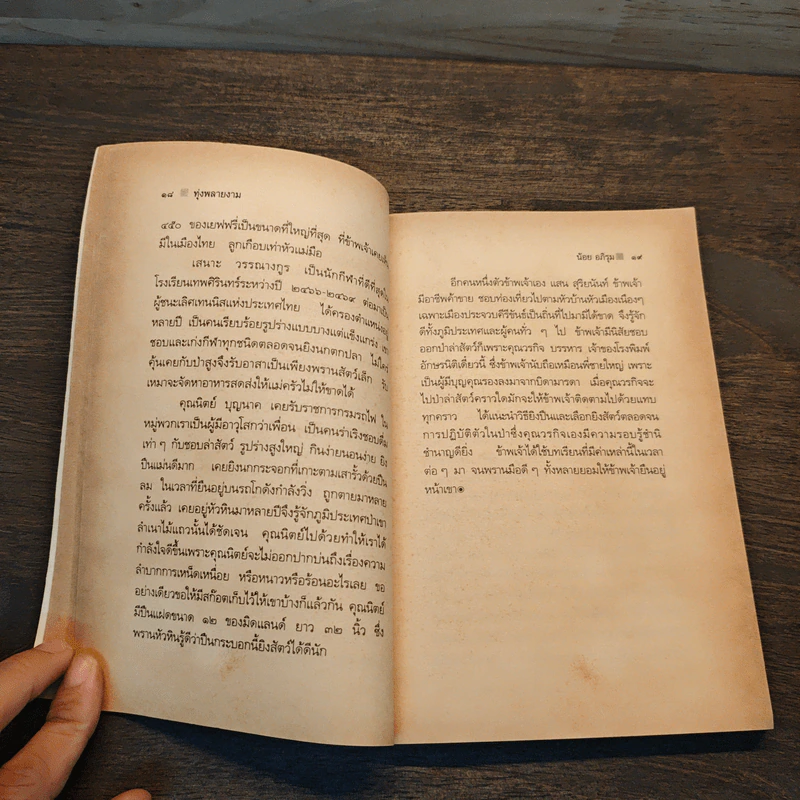 ๑๘ ทุ่งพลายงาม
๔๕๐ ของเยฟฟรี่เป็นขนาดที่ใหญ่ที่สุด ที่ข้าพเจ้าเคยเห็น
มีในเมืองไทย ลูกเกือบเท่าหัวแม่มือ
เสนาะ วรรณางกูร เป็นนักกีฬาที่ดีที่สุดใน
โรงเรียนเทพศิรินทร์ระหว่างปี ๒๔๖๖-๒๔๖๙ ต่อมาเป็น
ผู้ชนะเลิศเทนนิสแห่งประเทศไทย ได้ครองตำแหน่งอยู่
หลายปี เป็นคนเรียบร้อยรูปร่างแบบบางแต่แข็งแกร่ง เขา
ชอบและเก่งกีฬาทุกชนิดตลอดจนยิงนกตกปลา ไม่ใคร่
คุ้นเคยกับป่าสูงจึงรับอาสาเป็นเพียงพรานสัตว์เล็ก รับ
เหมาจะจัดหาอาหารสดส่งให้แม่ครัวไม่ให้ขาดได้
คุณนิตย์ บุญนาค เคยรับราชการกรมรถไฟ ใน
หมู่พวกเราเป็นผู้มีอาวุโสกว่าเพื่อน เป็นคนร่าเริงชอบดื่ม
เท่า ๆ กับชอบล่าสัตว์ รูปร่างสูงใหญ่ กินง่ายนอนง่าย ยิง
ปืนแม่นดีมาก เคยยิงนกกระจอกที่เกาะตามเสารั้วด้วยปืน
ลม ในเวลาที่ยืนอยู่บนรถโกดังกำลังวิ่ง ถูกตายมาหลาย
ครั้งแล้ว เคยอยู่หัวหินมาหลายปีจึงรู้จักภูมิประเทศป่าเขา
ลำเนาไม้แถวนั้นได้ชัดเจน คุณนิตย์ไปด้วยทำให้เราได้
กำลังใจดีขึ้นเพราะคุณนิตย์จะไม่ออกปากบ่นถึงเรื่องความ
ลำบากการเหน็ดเหนื่อย หรือหนาวหรือร้อนอะไรเลย ขอ
อย่างเดียวขอให้มีสก๊อตเก็บไว้ให้เขาบ้างก็แล้วกัน คุณนิตย์
มีปืนแฝดขนาด ๑๒ ของมิดแลนด์ ยาว ๓๒ นิ้ว ซึ่ง
พรานหัวหินรู้ดีว่าปืนกระบอกนี้ยิงสัตว์ได้ดีนัก
น้อย อภิรุม ๑๙
อีกคนหนึ่งตัวข้าพเจ้าเอง แสน สุริยนันท์ ข้าพเจ้า
มีอาชีพค้าขาย ชอบท่องเที่ยวไปตามหัวบ้านหัวเมืองเนืองๆ
เฉพาะเมืองประจวบคีรีขันธ์เป็นถิ่นที่ไปมามิได้ขาด จึงรู้จัก
ดีทั้งภูมิประเทศและผู้คนทั่ว ๆ ไป ข้าพเจ้ามีนิสัยชอบ
ออกป่าล่าสัตว์ก็เพราะคุณวรกิจ บรรหาร เจ้าของโรงพิมพ์
อักษรนิติเดี๋ยวนี้ ซึ่งข้าพเจ้านับถือเหมือนพี่ชายใหญ่ เพราะ
เป็นผู้มีบุญคุณรองลงมาจากบิดามารดา เมื่อคุณวรกิจจะ
ไปป่าล่าสัตว์คราวใดมักจะให้ข้าพเจ้าติดตามไปด้วยแทบ
ทุกคราว ได้แนะนำวิธียิงปืนและเลือกยิงสัตว์ตลอดจน
การปฏิบัติตัวในป่าซึ่งคุณวรกิจเองมีความรอบรู้ชำนิ
ชำนาญดียิ่ง ข้าพเจ้าได้ใช้บทเรียนที่มีค่าเหล่านี้ในเวลา
ต่อ ๆ มา จนพรานมือดี ๆ ทั้งหลายยอมให้ข้าพเจ้ายืนอยู่
หน้าเขา๏